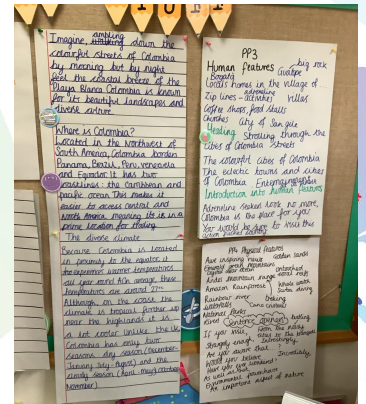 Imagine, ambling down the
colourful streets of Colombia
by morning but by night
feel the coastal breeze of the
Playa Blanca Colombia is known
for its beautiful landscapes and
diverse culture.
Where is Colombia?
Located in the Northwest of
South America, Colombia borders
Panama, Brazil, Peru, Venezuela
and Equador it has two
coastlines: the Caribbean and
pacific ocean This makes it
easier to access central and
North America meaning its is in a
prime location for trading
The diverse climate
Because Colombia is located
in proximity to the equator it
experiences warmer temperatures
all year round. On average, these
temperatures are around 27°
Although, on the coast the
climate is tropical further up
near the highlands it is
a lot cooler. Unlike the UK,
Colombia has only two
seasons: dry season (December-
January July-August) and the
cloudy season (April-may, October-
November)
PP3
Human features
big rock
Guatape
Bogota
Locals homes in the village of
Zip lines - adrenaline activities
villas
Coffee shops, food stalls
Churches
City of San gil
Heading
Strolling through the
cities of Colombia streets
The colourful cities of Colombia
The eclectic towns and cities
of Colombia
Introduction into human features
Adrenaline seekers look no more,
Colombia is the place for you
You would be sure to miss this
action packed country
PP4 Physical Features
Awe inspiring views
Golden sands
Emerald green mountains
Untouched
coral reefs
Andes mountain range
Amazon Rainforest
Whale watch
Scuba diving
Rainbow river
trekking
Waterfalls
National Parks
Sentence openers
If you wish,
Strangely enough,
Interestingly
Are you aware that
?
Would you believe
Incredibly
Have you ever wondered?
As well as that
An important aspect of nature